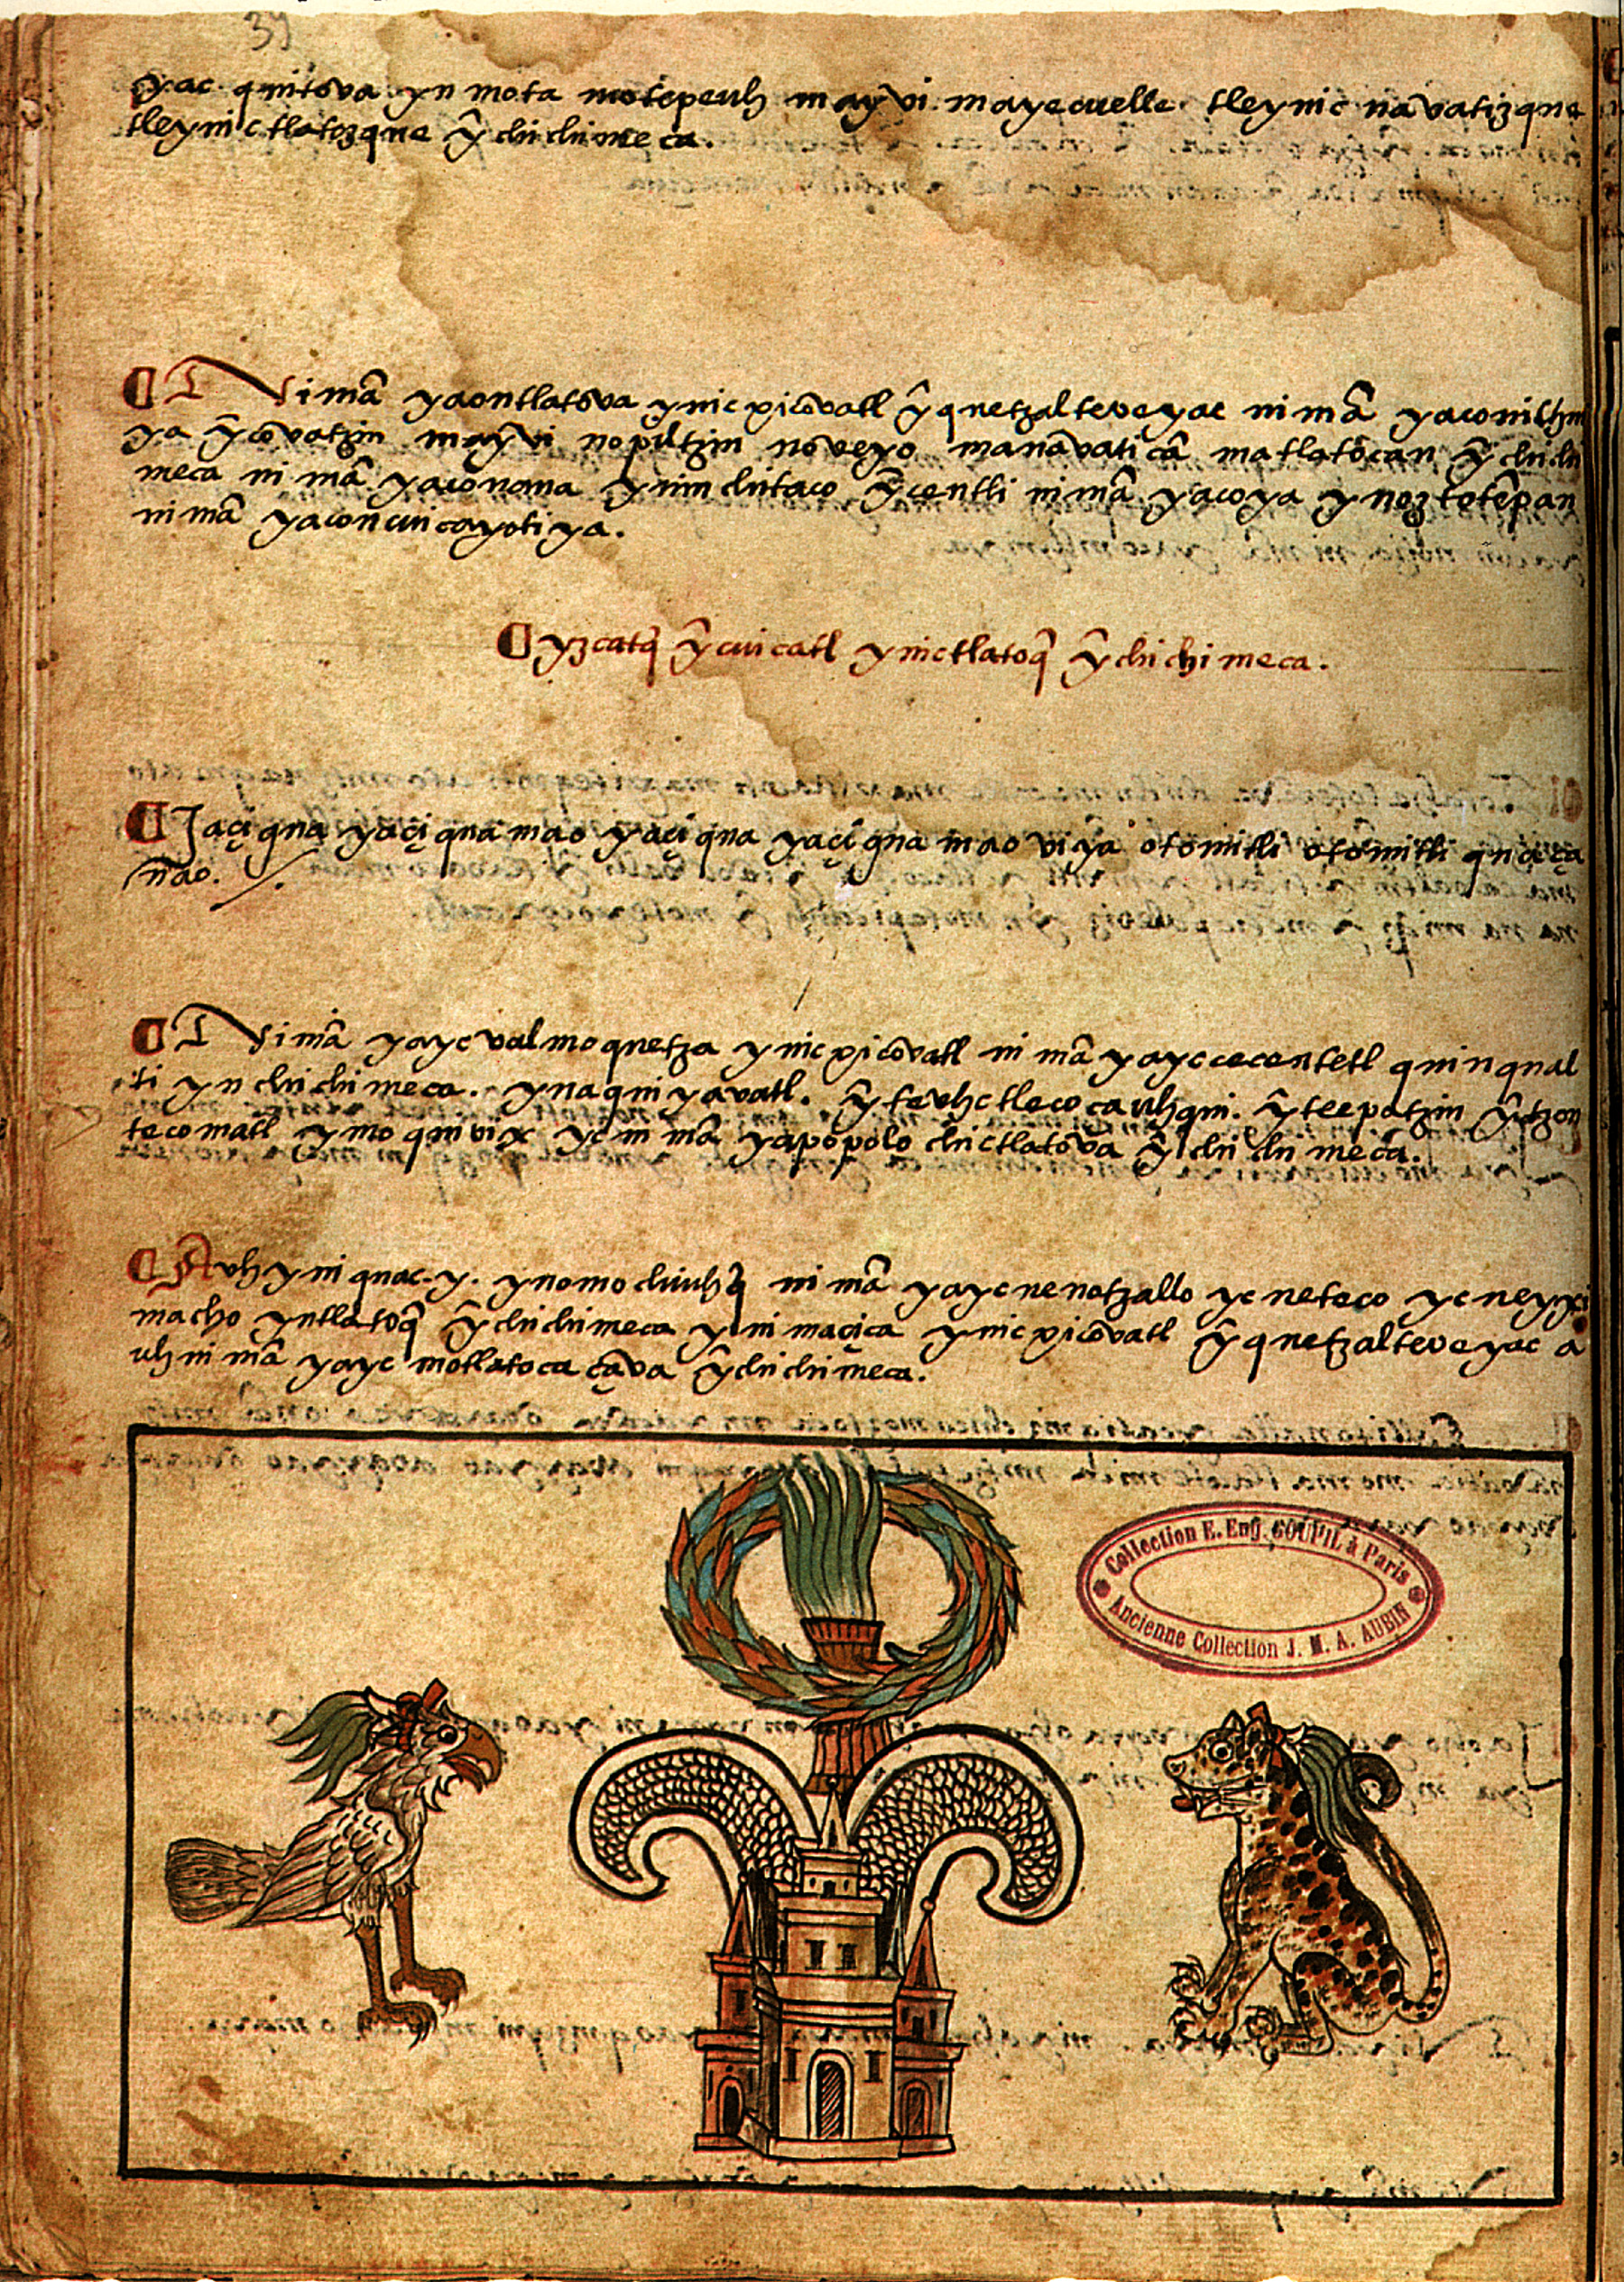 39
yac quitova yn mota motepeuh mayvi mayecuelle tleynic navatizque
tleynic tlatozque ỹ chichimeca.
Nimã yaontlatova ynicxicovatl ỹ quetzalteveyac nimã yaconilhui
ya ỹ covatzin mayvi nopiltzin noveyo manavaticã matlatocan ỹ chichi
meca nimã yaconana ynim chitaco ỹ centli nimã yacoya ynoztotẽpan
nimã yaconcuicayotiya.
yzcatq̃ ỹ cuicatl ynictlatoq̃ ỹ chichimeca.
Jaçiqua yaçiqua mao yaçiqua yaçiqua mao viya otomitli otomitli
ñao.
Nimã yayevalmoquetza ynicxicovatl nimã yayccecentetl quinqual
ti yn chichimeca. ynaquiyavatl. ỹ tevhctlecocauhqui. ỹ teepatzin ỹ tzon
tecomatl ymoquivix yc nimã yapopolochictlatova ỹ chichimeca.
Avh yniquac. y. ynomochiuhq̃ nimã yaycnenotzallo yc netaco yc neyxi
macho yntlatoq̃ ỹ chichimeca ynimaçica ynicxicovatl ỹ quetzalteveyac a
uh nimã yayc motlatocaçava ỹ chichimeca.
Collection E. Eug. GOUPIL à Paris
Ancienne Collection J. M. A. AUBIN